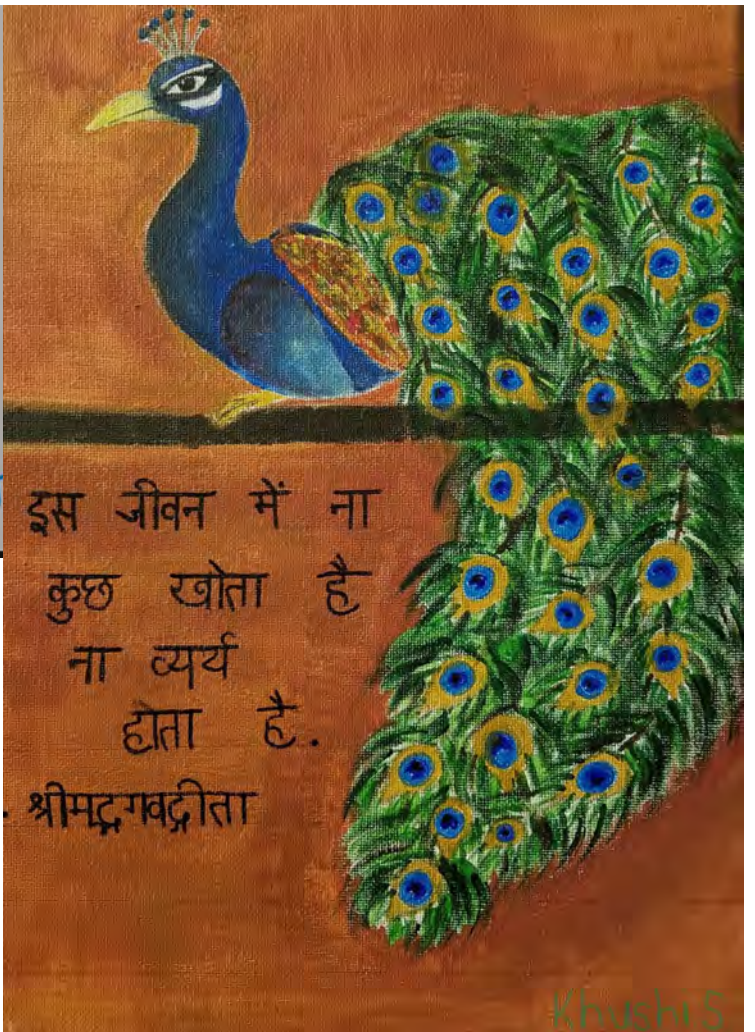 इस जीवन में ना
कुछ खोता है
ना व्यर्य
होता है.
- श्रीमद्भगवद्गीता
Khushi S